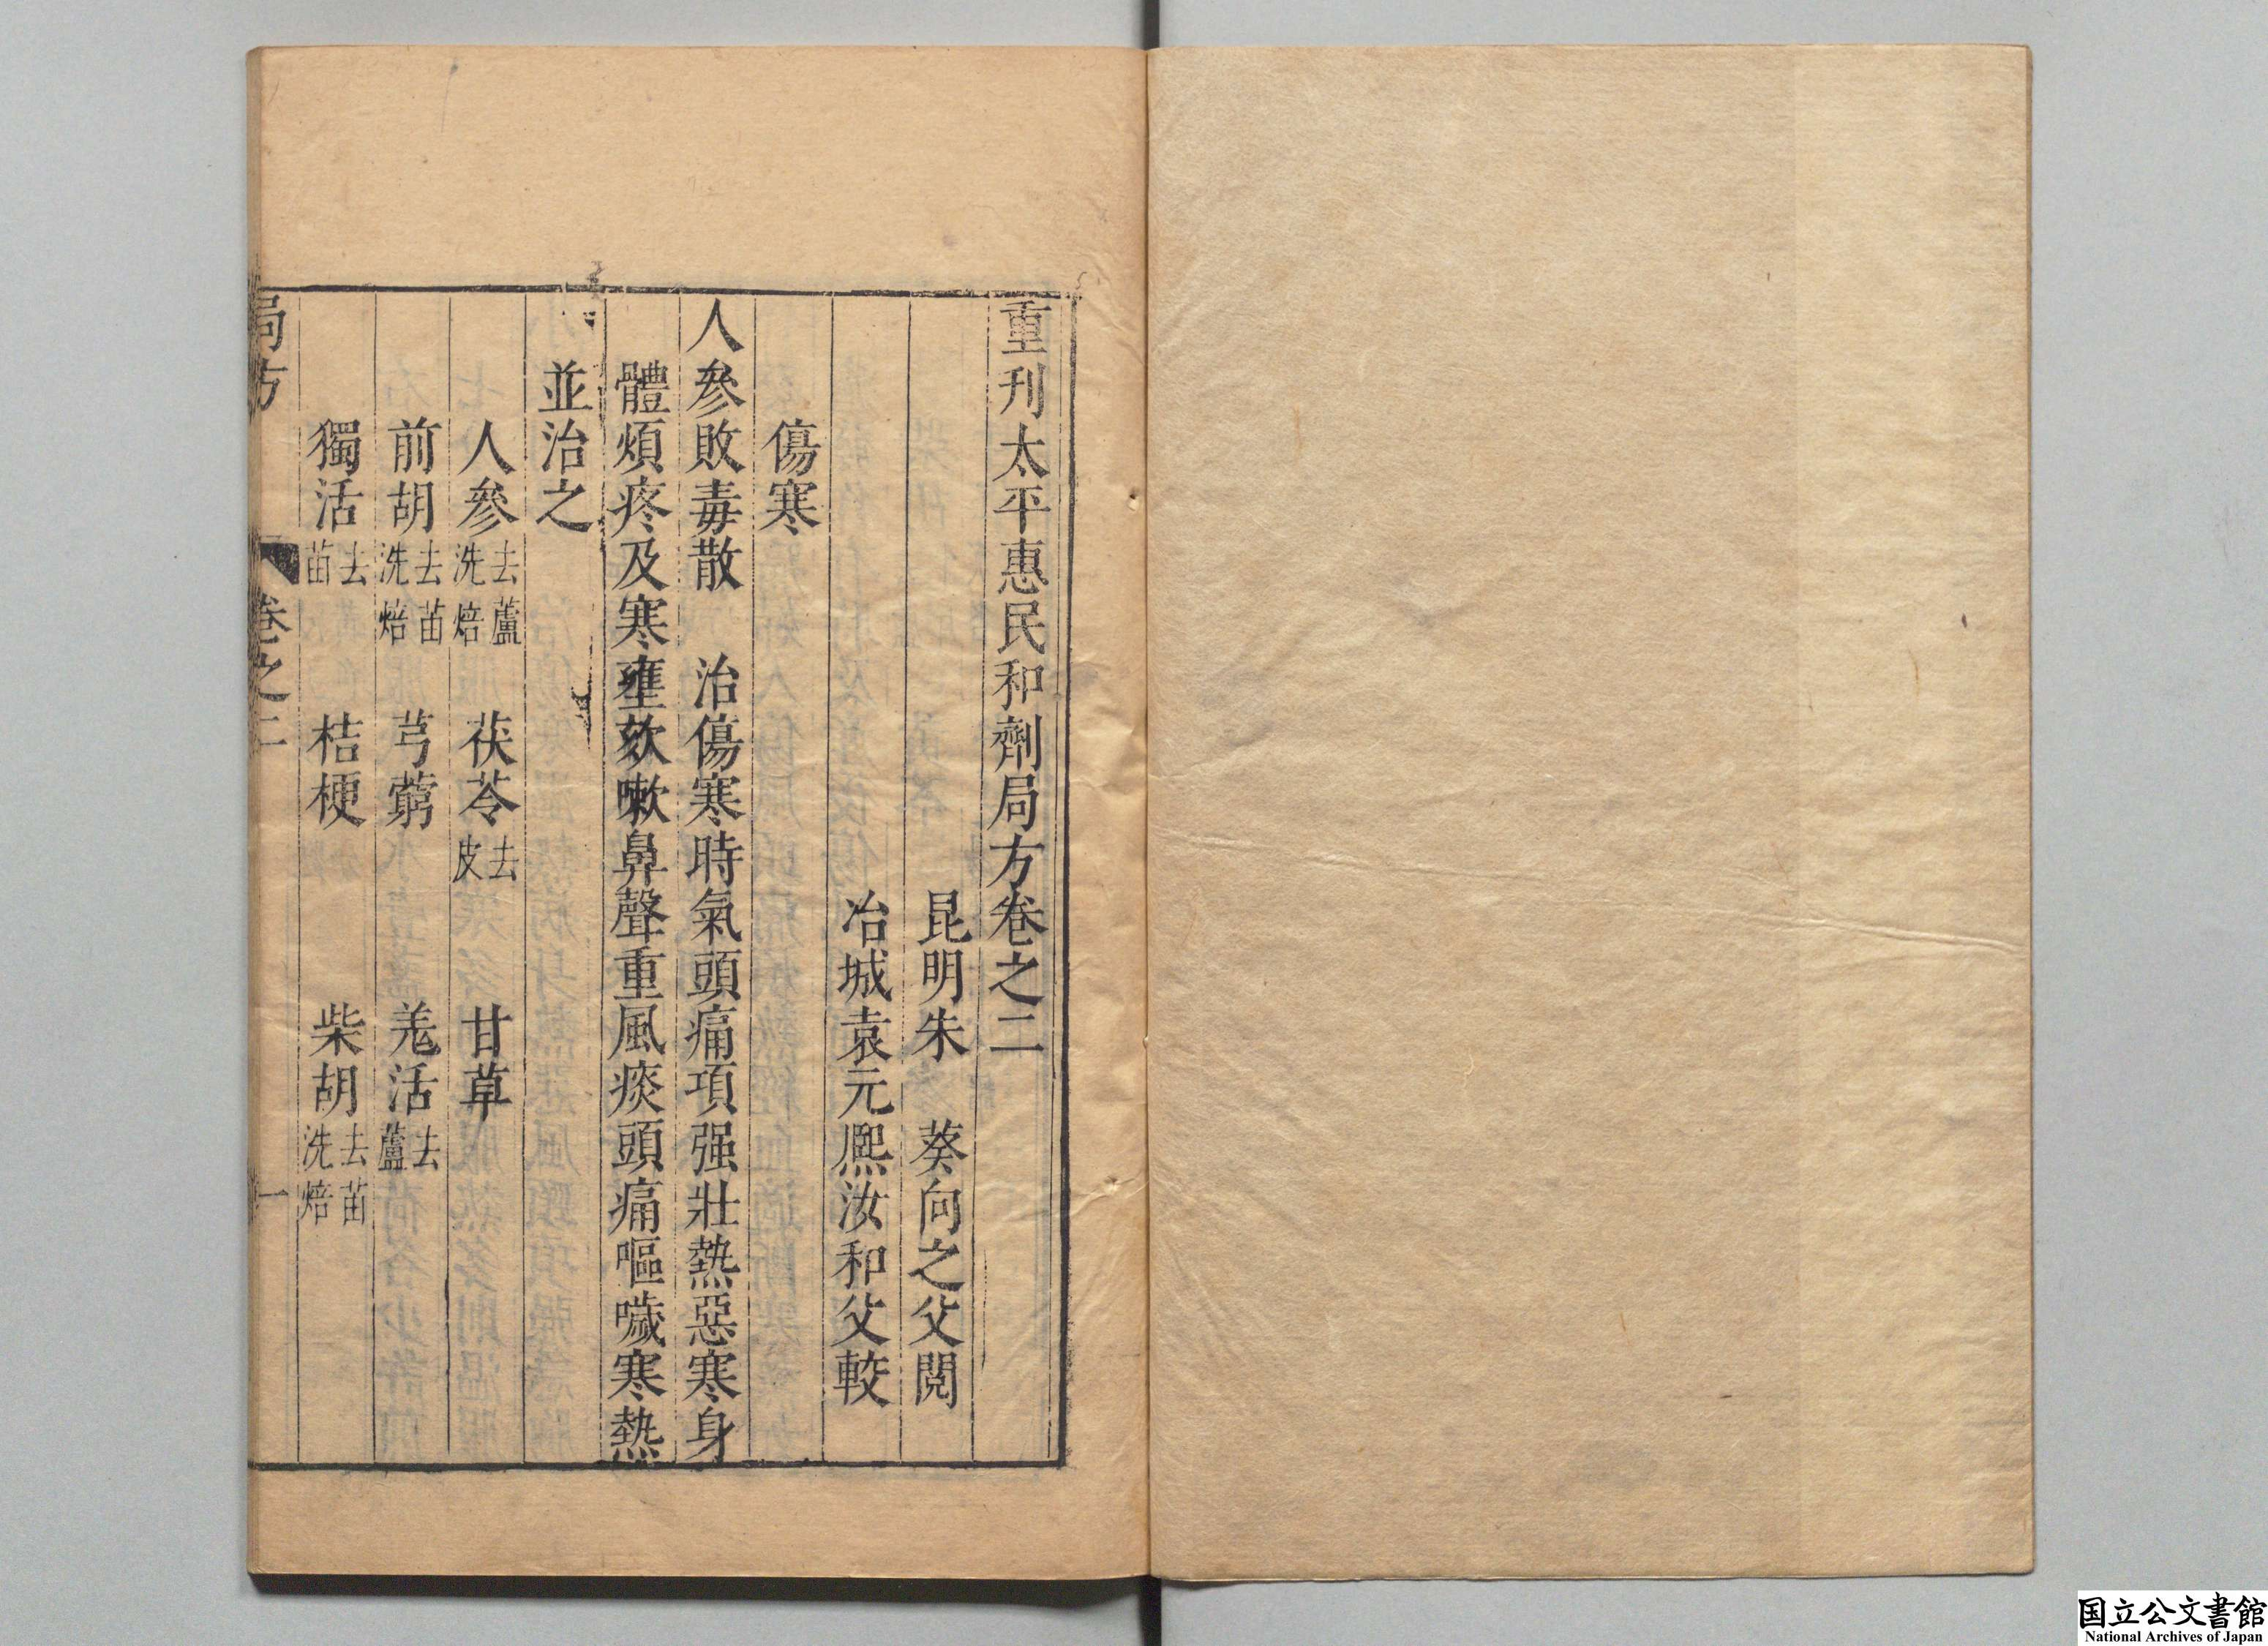 重刋太平惠民和劑局方卷之二
昆明朱　葵向之父閱
冶城袁元熈汝和父較
傷寒
人參敗毒散　治傷寒時氣頭痛項强壯熱惡寒身
體煩疼及寒壅欬嗽鼻聲重風痰頭痛嘔噦寒熱
並治之
人參去蘆洗焙　茯苓去皮　甘草
前胡去苗洗焙　芎藭　羗活去蘆
獨活去苗　桔梗　柴胡去苗洗焙
局方　卷之二　一
国立公文書館
National Archives of Japan